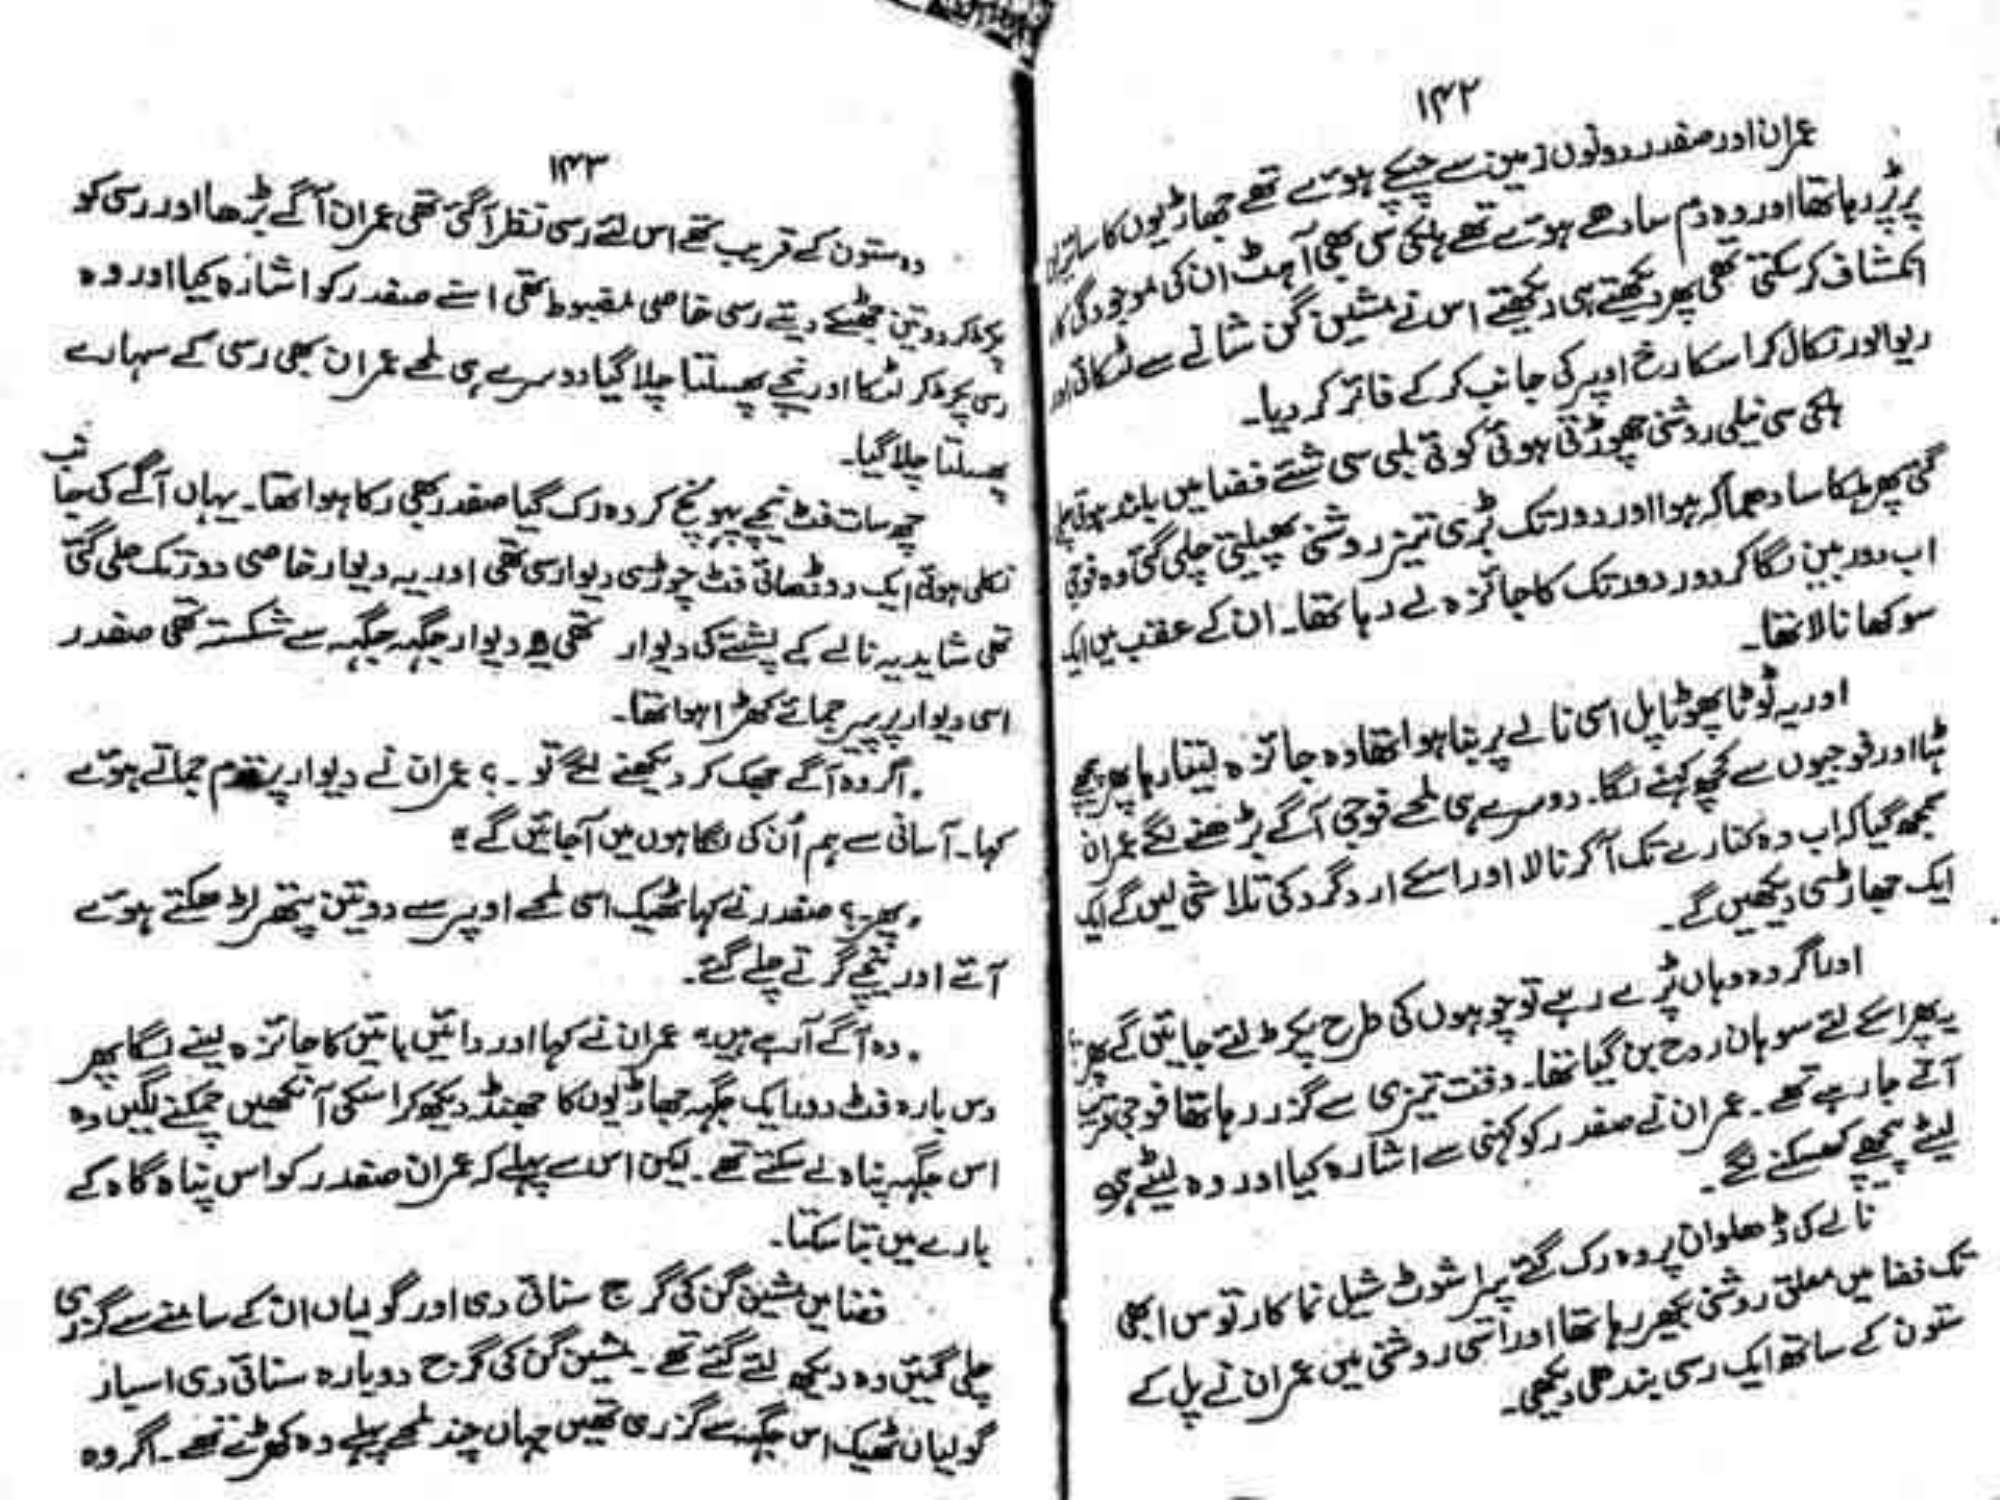 ۱۴۲
عمران اور صفدر دونوں زمین سے چپکے ہوئے تھے جھاڑیوں کا سایہ ان
پر پڑ رہا تھا اور وہ دم سادھے ہوئے تھے ہلکی سی بھی آہٹ ان کی موجودگی کا
انکشاف کر سکتی تھی پھر دیکھتے ہی دیکھتے اس نے مشین گن شانے سے لٹکائی اور
ریوالور نکال کر اسکا رخ اوپر کی جانب کر کے فائر کر دیا۔
ہلکی سی نیلی روشنی چھوڑتی ہوئی کوئی لمبی سی شئے فضا میں بلند ہوتی چلی
گئی پھر ہلکا سا دھماکہ ہوا اور دور تک بڑی تیز روشنی پھیلتی چلی گئی وہ فوجی
اب دوربین لگا کر دور دور تک کا جائزہ لے رہا تھا۔ ان کے عقب میں ایک
سوکھا نالا تھا۔
اور یہ ٹوٹا پھوٹا پل اسی نالے پر بنا ہوا تھا وہ جائزہ لیتا رہا پھر پیچھے
ہٹا اور فوجیوں سے کچھ کہنے لگا۔ دوسرے ہی لمحے فوجی آگے بڑھنے لگے عمران
سمجھ گیا کہ اب وہ کنارے تک آ کر نالا اور اسکے ارد گرد کی تلاشی لیں گے ایک
ایک جھاڑی دیکھیں گے۔
اور اگر وہ وہاں پڑے رہے تو چوہوں کی طرح پکڑ لئے جائیں گے پھر
یہ پھر اسکے لئے سوہان روح بن گیا تھا۔ وقت تیزی سے گزر رہا تھا فوجی قریب
آتے جا رہے تھے۔ عمران نے صفدر کو کہنی سے اشارہ کیا اور وہ لیٹے ہی
لیٹے پیچھے کھسکنے لگے۔
نالے کی ڈھلوان پر وہ رک گئے پیراشوٹ شیل نما کارتوس ابھی
تک فضا میں معلق روشنی بکھیر رہا تھا اور اسی روشنی میں عمران نے پل کے
ستون کے ساتھ ایک رسی بندھی دیکھی۔
۱۴۳
وہ ستون کے قریب تھے اس لئے رسی نظر آ گئی تھی عمران آگے بڑھا اور رسی کو
پکڑ کر دو تین جھٹکے دیئے رسی خاصی مضبوط تھی اسنے صفدر کو اشارہ کیا اور وہ
رسی پکڑ کر لٹکا اور نیچے پھسلتا چلا گیا دوسرے ہی لمحے عمران بھی رسی کے سہارے
پھسلتا چلا گیا۔
چھ سات فٹ نیچے پہونچ کر وہ رک گیا صفدر بھی رکا ہوا تھا۔ یہاں آگے کی جانب
نکلی ہوئی ایک دو ڈھائی فٹ چوڑی دیوار سی تھی اور یہ دیوار خاصی دور تک چلی گئی
تھی شاید یہ نالے کے پشتے کی دیوار تھی یہ دیوار جگہ جگہ سے شکستہ تھی صفدر
اسی دیوار پر پیر جمائے کھڑا ہوا تھا۔
”اگر وہ آگے جھک کر دیکھنے لگے تو۔؟ عمران نے دیوار پر قدم جماتے ہوئے
کہا۔ آسانی سے ہم اُن کی نگاہوں میں آ جائیں گے“
”پھر۔؟ صفدر نے کہا ٹھیک اسی لمحے اوپر سے دو تین پتھر لڑھکتے ہوئے
آئے اور نیچے گرتے چلے گئے۔
”وہ آگے آ رہے ہیں“ عمران نے کہا اور دائیں بائیں کا جائزہ لینے لگا پھر
دس بارہ فٹ دور ایک جگہ جھاڑیوں کا جھنڈ دیکھ کر اسکی آنکھیں چمکنے لگیں وہ
اس جگہ پناہ لے سکتے تھے۔ لیکن اس سے پہلے کہ عمران صفدر کو اس پناہ گاہ کے
بارے میں بتا سکتا۔
فضا میں مشین گن کی گرج سنائی دی اور گولیاں ان کے سامنے سے گزرتی
چلی گئیں وہ دیکھ لئے گئے تھے۔ مشین گن کی گرج دوبارہ سنائی دی اسبار
گولیاں ٹھیک اس جگہ سے گزری تھیں جہاں چند لمحے پہلے وہ کھڑے تھے۔ اگر وہ